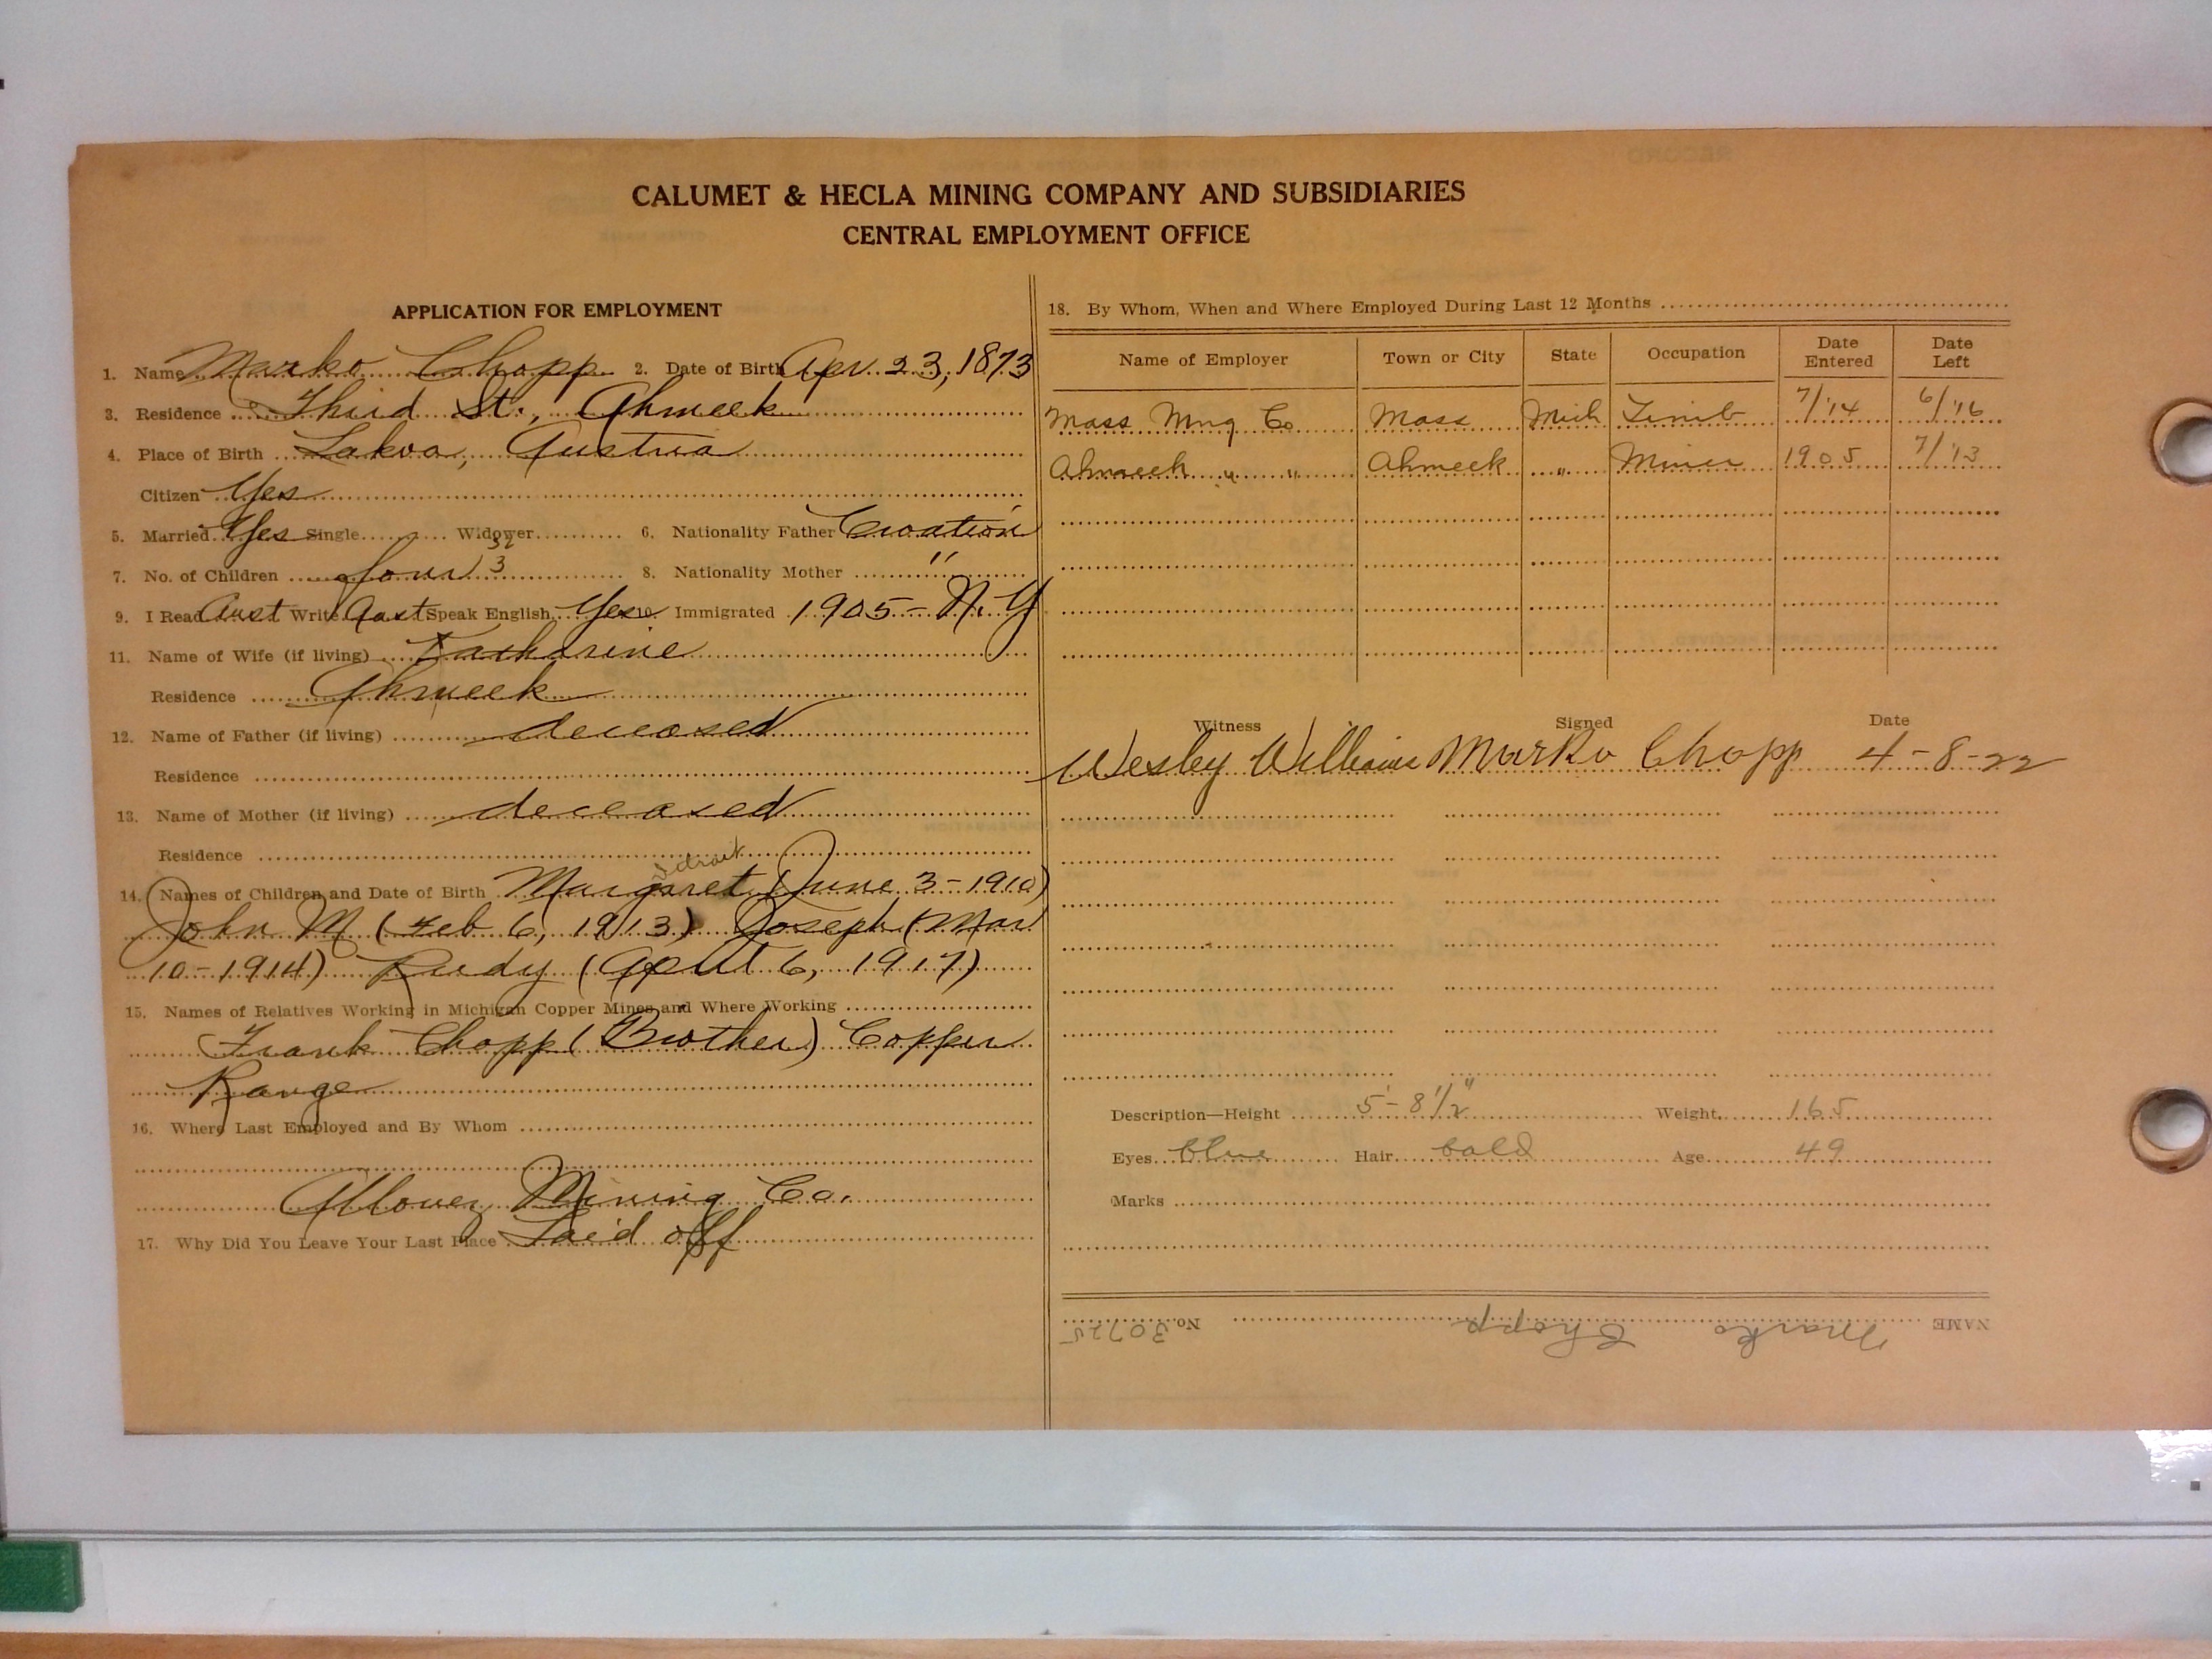 CALUMET & HECLA MINING COMPANY AND SUBSIDIARIES
CENTRAL EMPLOYMENT OFFICE
APPLICATION FOR EMPLOYMENT
1. Name Marko Chopp 2. Date of Birth Apr. 23, 1873
3. Residence Third St., Ahmeek
4. Place of Birth Lakva, Austria
Citizen Yes
5. Married Yes Single Widower 6. Nationality Father Croation
7. No. of Children four 3 8. Nationality Mother "
9. I Read Aust Write Aust Speak English Yes Immigrated 1905 - N.Y
11. Name of Wife (if living) Katharine
Residence Ahmeek
12. Name of Father (if living) deceased
Residence
13. Name of Mother (if living) deceased
Residence
Detroit
14. Names of Children and Date of Birth Margaret (June 3-1910)
John M (Feb 6, 1913) Joseph (Mar
10-1914) Rudy (April 6, 1917)
15. Names of Relatives Working in Michigan Copper Mines and Where Working
Frank Chopp (Brother) Copper
Range
16. Where Last Employed and By Whom
Allouez Mining Co.
17. Why Did You Leave Your Last Place Laid off
18. By Whom, When and Where Employed During Last 12 Months
Name of Employer Town or City State Occupation Date Entered Date Left
Mass Mng Co Mass Mich Timb 7/'14 6/'16
Ahmeek " " Ahmeek " Miner 1905 7/'13
Witness Signed Date
Wesley Williams Marko Chopp 4-8-22
Description—Height 5'-8 1/2" Weight 165
Eyes blue Hair bald Age 49
Marks
NAME Marko Chopp No. 30725